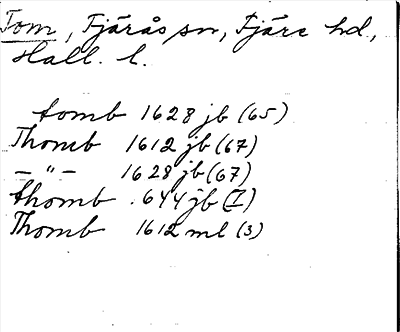 Tom, Fjärås sn, Fjäre hd,
Hall. l.
tomb 1628 jb (65)
Thomb 1612 jb (67)
— " — 1628 jb (67)
thomb .644 jb (I)
Thomb 1612 ml (3)